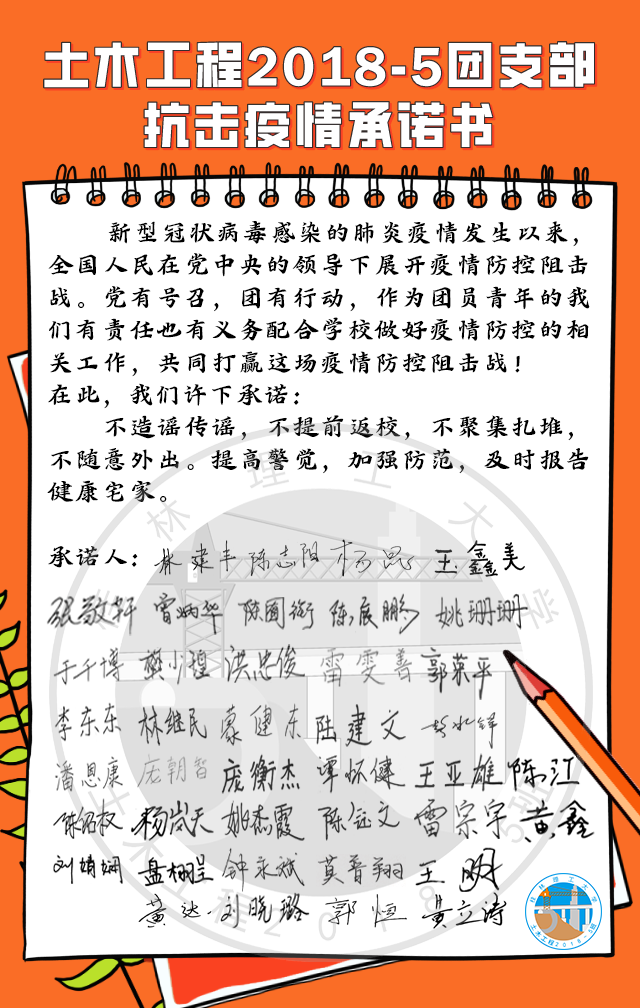 土木工程2018-5团支部
抗击疫情承诺书
新型冠状病毒感染的肺炎疫情发生以来，
全国人民在党中央的领导下展开疫情防控阻击
战。党有号召，团有行动，作为团员青年的我
们有责任也有义务配合学校做好疫情防控的相
关工作，共同打赢这场疫情防控阻击战！
在此，我们许下承诺：
不造谣传谣，不提前返校，不聚集扎堆，
不随意外出。提高警觉，加强防范，及时报告
健康宅家。
承诺人：林建丰 陈志阳 杨 王鑫美
张敬轩 曾炳华 陈国衔 陈展鹏 姚珊珊
于千博 樊少煌 洪忠俊 雷雯善 郭荣平
李东东 林继民 蒙健东 陆建文
潘恩康 庞朝智 庞衡杰 谭怀健 王亚雄 陈江
陈绍权 杨岚天 姚杰霞 陈钰文 雷宗宇 黄鑫
刘娟娟 盘栩呈 钟永斌 莫晋翔 王明
黄达 刘晓璐 郭恒 黄立涛
桂林理工大学
土木工程2018-5班